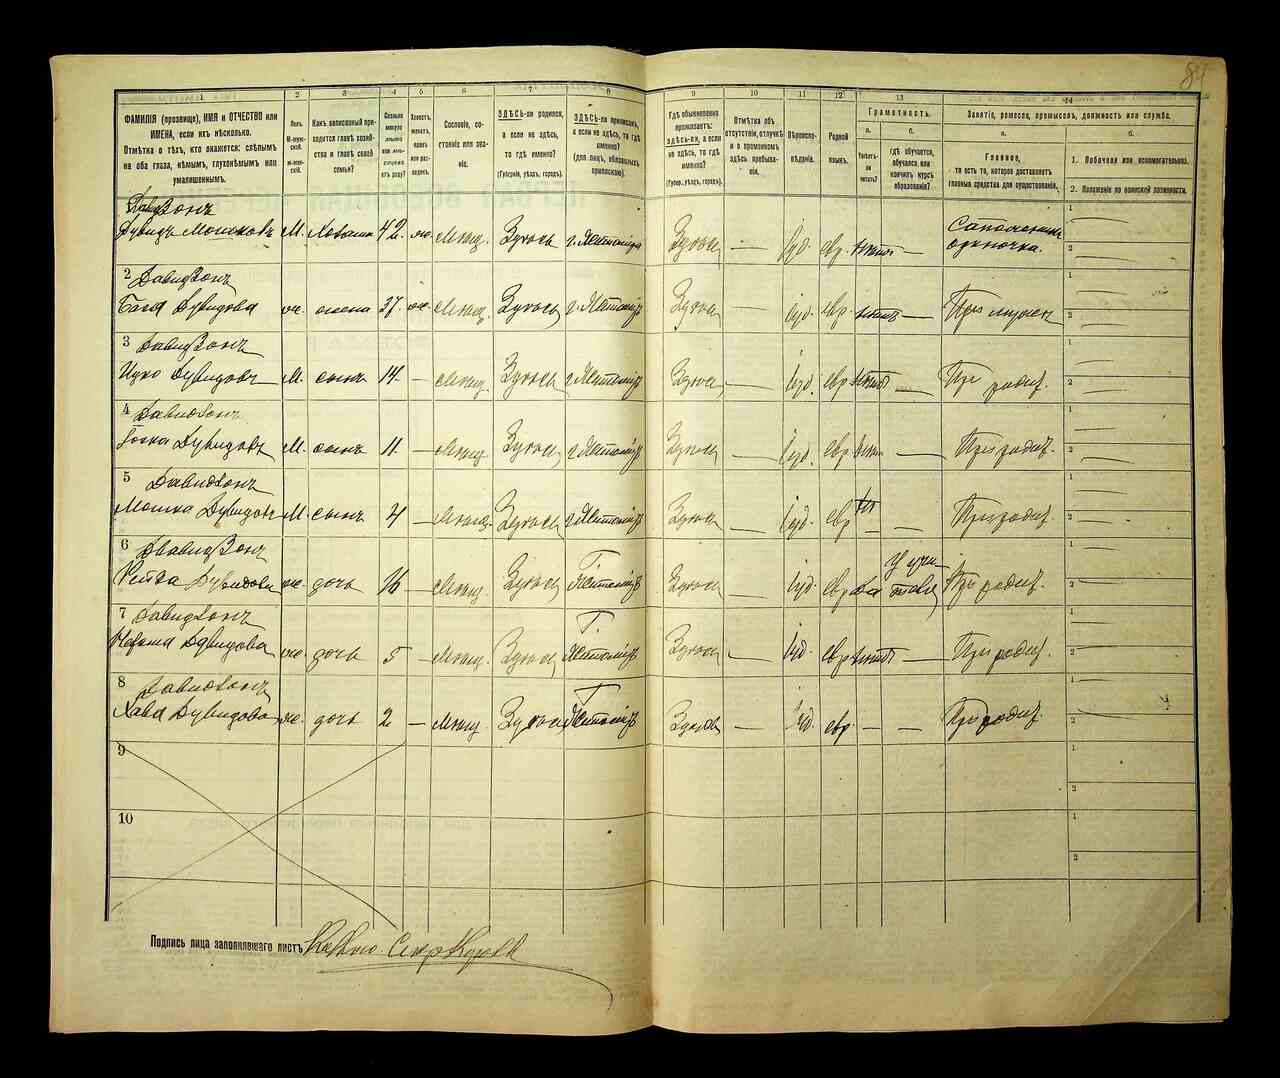 84
1 2 3 4 5 6 7 8 9 10 11 12 13 14
ФАМИЛІЯ (прозвище), ИМЯ и ОТЧЕСТВО или ИМЕНА, если ихъ нѣсколько.
Отмѣтка о тѣхъ, кто окажется: слѣпымъ на оба глаза, нѣмымъ, глухонѣмымъ или умалишеннымъ.
Полъ.
Какъ записанный приходится главѣ хозяйства и главѣ своей семьи?
Сословіе, состояніе или званіе.
ЗДѢСЬ-ли родился, а если не здѣсь, то гдѣ именно?
(Губернія, уѣздъ, городъ).
ЗДѢСЬ-ли приписанъ, а если не здѣсь, то гдѣ именно?
(для лицъ, обязанныхъ припискою).
Гдѣ обыкновенно проживаетъ: ЗДѢСЬ-ли, а если не здѣсь, то гдѣ именно?
(Губер., уѣздъ, городъ).
Отмѣтка объ отсутствіи, отлучкѣ и о временномъ здѣсь пребываніи.
Вѣроисповѣданіе.
Родной языкъ.
Грамотность.
а. Умѣетъ-ли читать?
б. гдѣ обучается, обучался или кончилъ курсъ образованія?
Занятіе, ремесло, промыселъ, должность или служба.
а. Главное, то есть то, которое доставляетъ главныя средства для существованія.
б. 1. Побочное или вспомогательное.
2. Положеніе по воинской повинности.
Давидзонъ
Дувидъ Мошковъ М. Хозяинъ 42 же. Мѣщ. Здѣсь г. Житоміръ Здѣсь — Іуд. евр. нѣтъ — Сапожникъ одиночка.
2 Давидзонъ
Дувидова же. жена 37 Мѣщ. Здѣсь г. Житоміръ Здѣсь — Іуд. евр. нѣтъ — При мужѣ
3 Давидзонъ
Ицко Дувидовъ М. сынъ 14 — Мѣщ. Здѣсь г. Житоміръ Здѣсь — Іуд. евр. нѣтъ — При родит.
4 Давидзонъ
Дувидовъ М. сынъ 11 — Мѣщ. Здѣсь г. Житоміръ Здѣсь — Іуд. евр. — При родит.
5 Давидзонъ
Мошка Дувидовъ М. сынъ — Мѣщ. Здѣсь г. Житоміръ Здѣсь — Іуд. евр — При родит.
6 Давидзонъ
Дувидова же. дочь 16 — Мѣщ. Здѣсь Г. Житоміръ Здѣсь — Іуд. евр да У учителя При родит.
7 Давидзонъ
Дувидова же. дочь 5 — Мѣщ. Здѣсь Г. Житоміръ Здѣсь — Іуд. евр нѣтъ — При родит.
8 Давидзонъ
Хава Дувидова же. дочь 2 — Мѣщ. Здѣсь Г. Житоміръ Здѣсь — Іуд. евр — — При родит.
9
10
Подпись лица заполнявшаго листъ